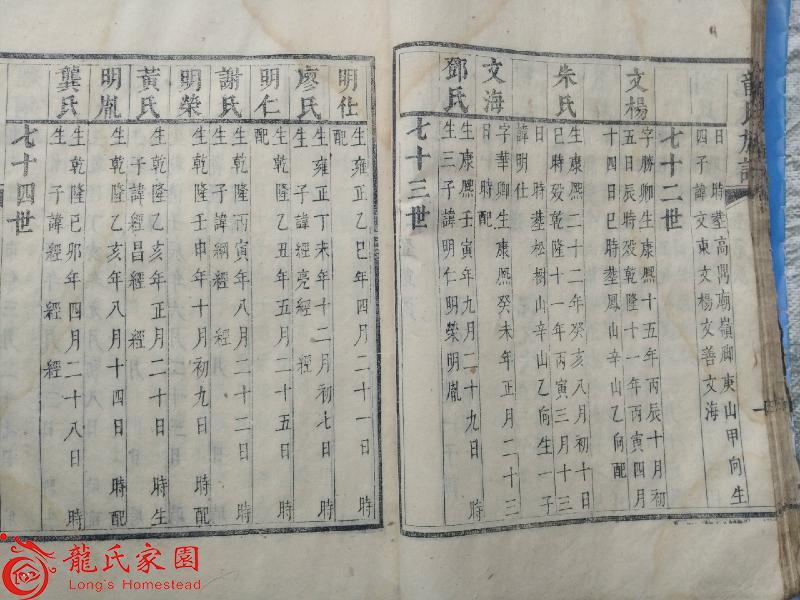 日 時塟高隅廟嶺卿東山甲向生
四子諱文東文楊文善文海
七十二世
文楊
字勝卿生康熙十五年丙辰十月初
五日辰時殁乾隆十一年丙寅四月
十四日巳時塟鳳山辛山乙向配
朱氏
生康熙二十二年癸亥八月初十日
巳時殁乾隆十一年丙寅三月十三
日 時塟松樹山辛山乙向生一子
諱明仕
文海
字華卿生康熙癸未年正月二十三
日 時配
鄧氏
生康熙壬寅年九月二十九日 時
生三子諱明仁明榮明胤
七十三世
明仕
生雍正乙巳年四月二十一日 時
配
廖氏
生雍正丁未年十二月初七日 時
生 子諱經亮經
明仁
生乾隆乙丑年五月二十五日 時
配
謝氏
生乾隆丙寅年八月二十二日 時
生 子諱綱經 經
明榮
生乾隆壬申年十月初九日 時配
黃氏
生乾隆乙亥年正月二十日 時生
子諱經昌經 經
明胤
生乾隆乙亥年八月十四日 時配
龔氏
生乾隆己卯年四月二十八日 時
生 子諱經 經 經
七十四世
龍氏家園
Long's Homestead